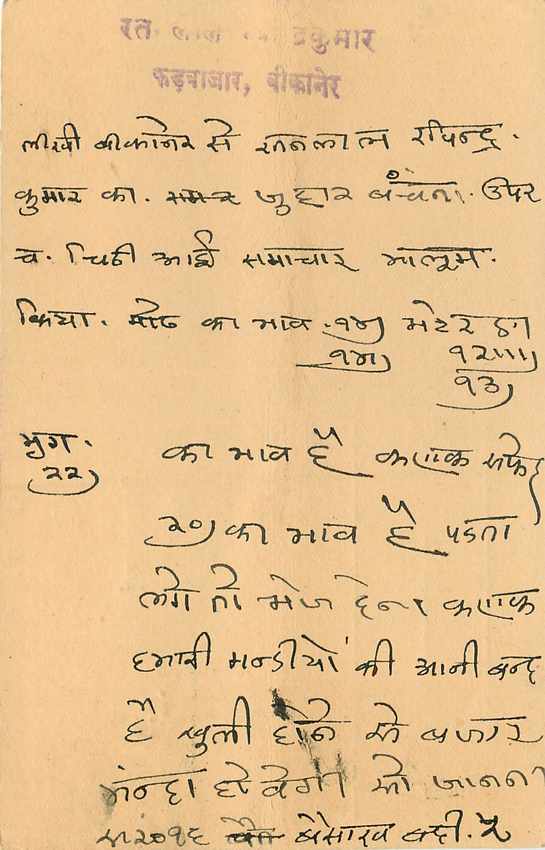 रत लाल द्रकुमार
फड़बाजार, बीकानेर
लीखी बीकानेर से रतनलाल रविन्द्र.
कुमार का. जुहार बंचना. उपर
च. चिठी आई समाचार मालुम.
किया. मोठ का भाव मटर
१२॥।)
१३)
मुग. का भाव है कणक सफेद
२२)
२०) का भाव है पडता
लगे तो भेज देना कणक
हमारी मन्डीयों की आनी बन्द
है खुली होने से बजार
मन्दा हो वेगा सो जानना
२०१६ चैत बैसाख बदी. २